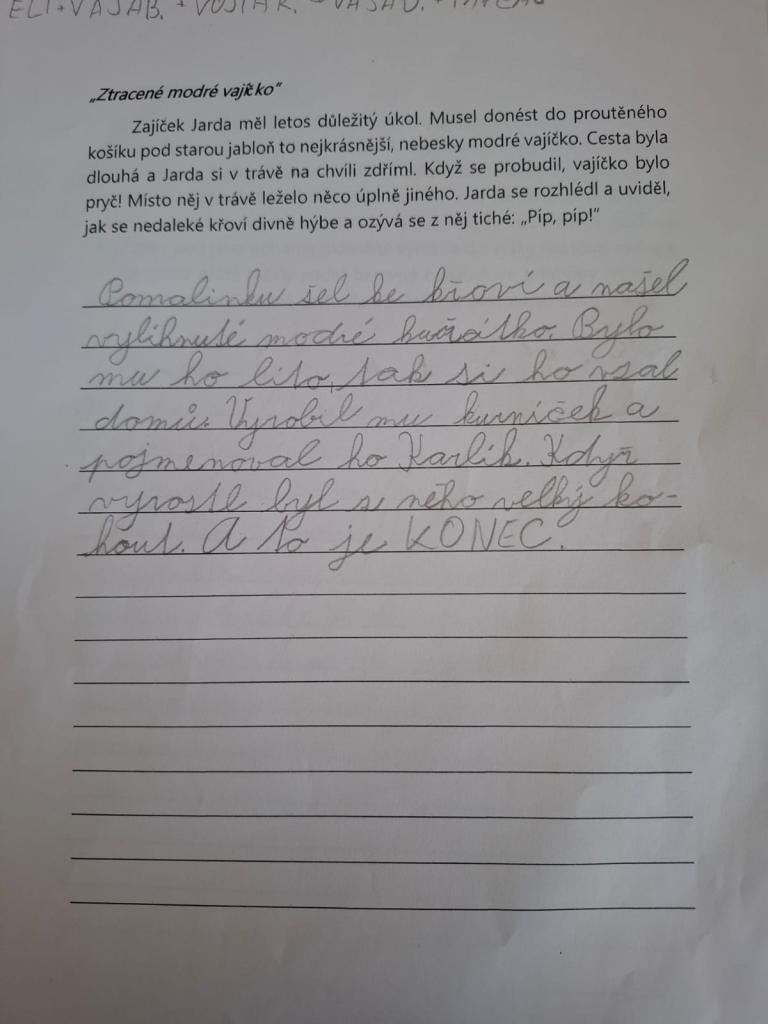 ELI + VAJAB. + VOJTAR. 
„Ztracené modré vajíčko“
Zajíček Jarda měl letos důležitý úkol. Musel donést do proutěného
košíku pod starou jabloň to nejkrásnější, nebesky modré vajíčko. Cesta byla
dlouhá a Jarda si v trávě na chvíli zdříml. Když se probudil, vajíčko bylo
pryč! Místo něj v trávě leželo něco úplně jiného. Jarda se rozhlédl a uviděl,
jak se nedaleké křoví divně hýbe a ozývá se z něj tiché: „Píp, píp!“
Pomalinku šel ke křoví a našel
vylihnuté modré kuřátko. Bylo
mu ho líto, tak si ho vzal
domů. Vyrobil mu kurníček a
pojmenoval ho Karlík. Když
vyrostl byl s něho velký ko-
hout. A to je KONEC.